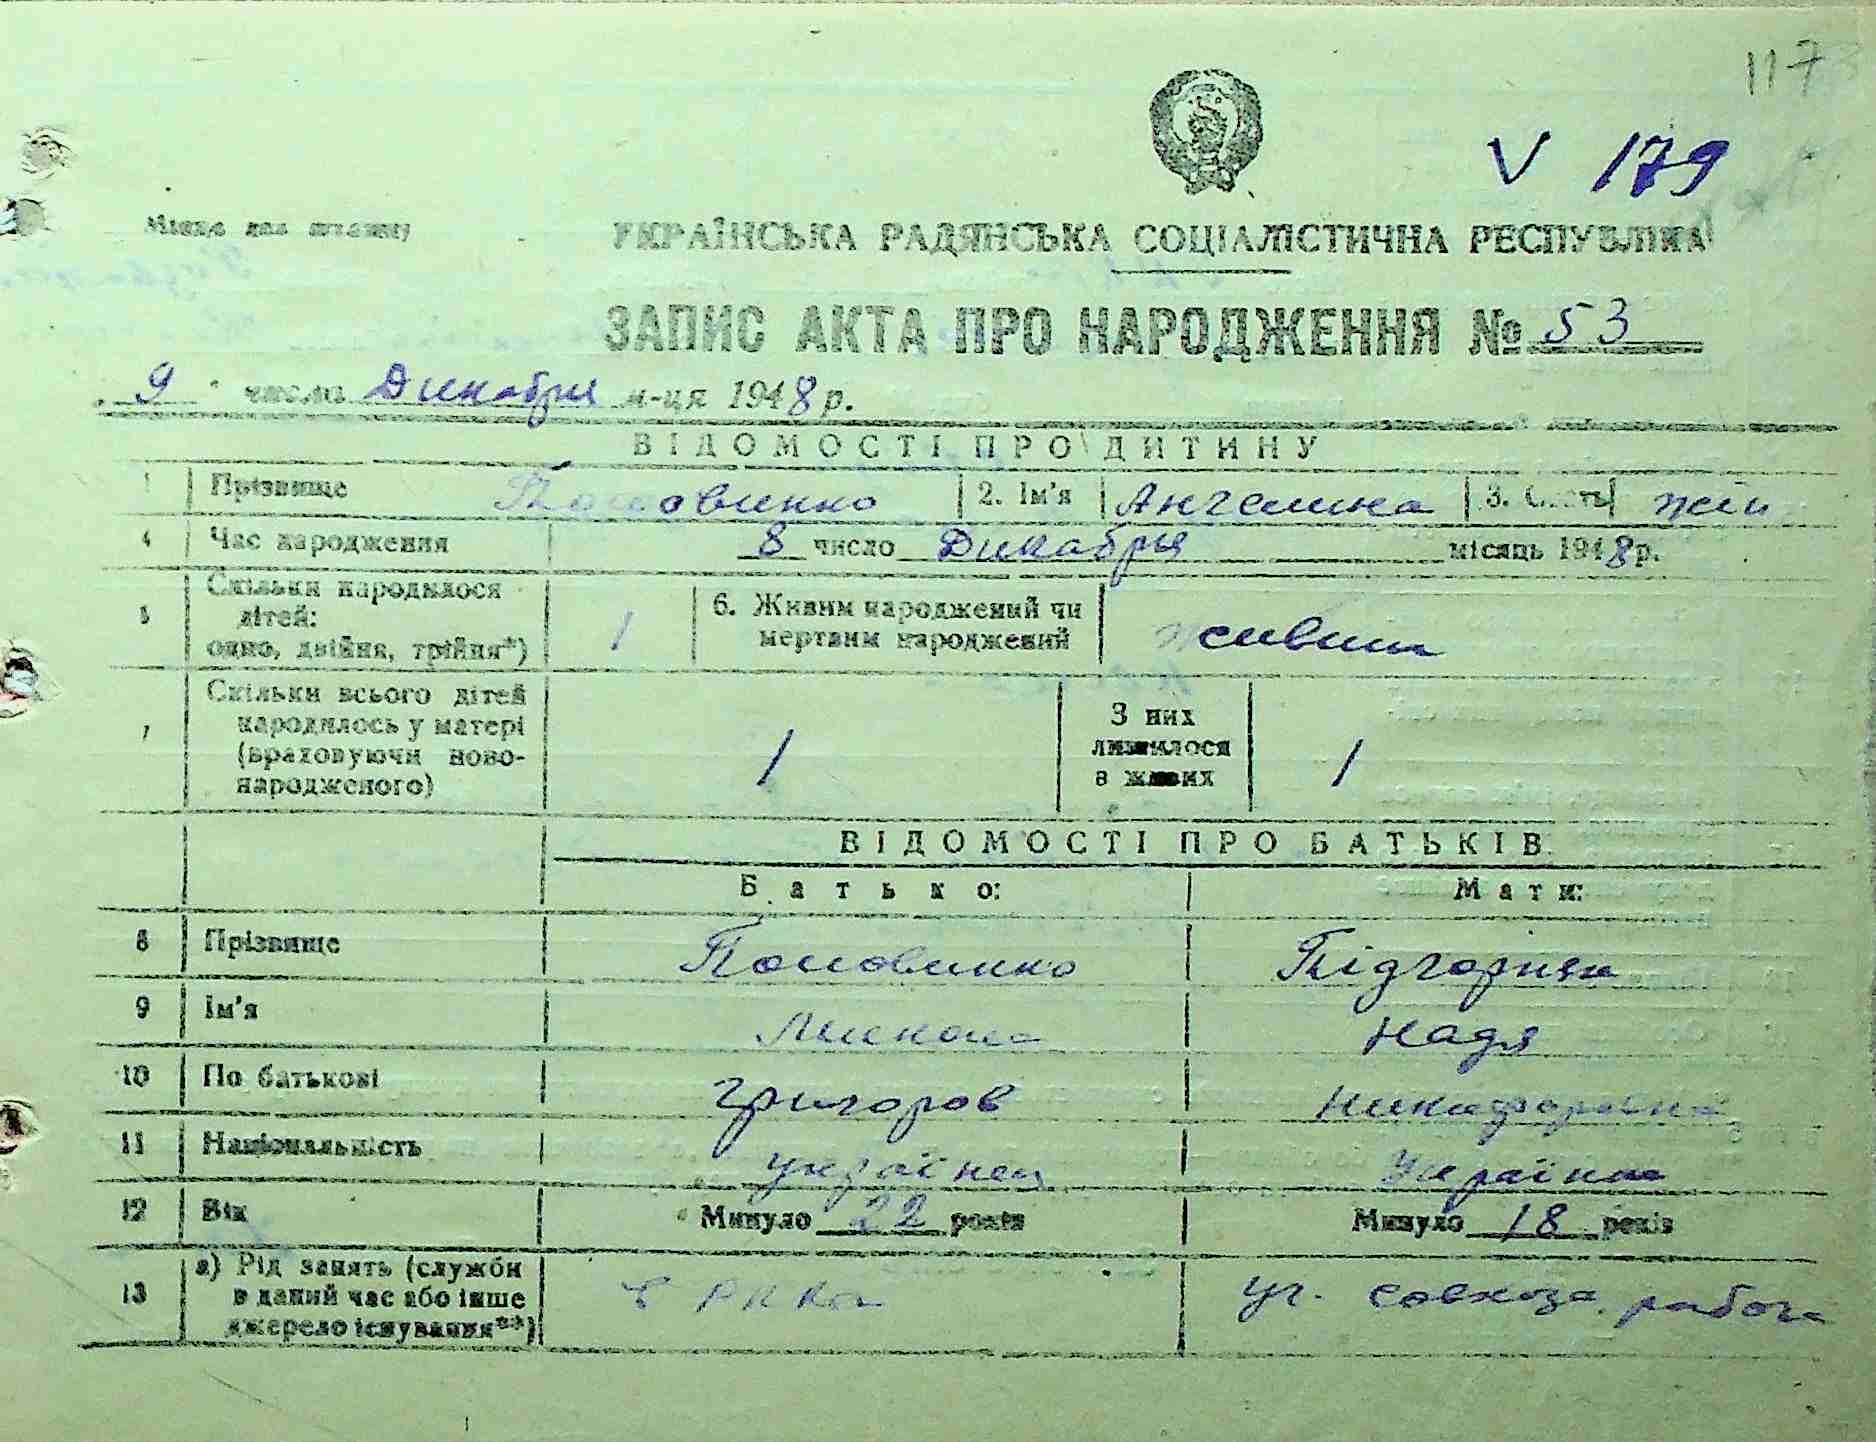 117
V 179
Місце для штампу
УКРАЇНСЬКА РАДЯНСЬКА СОЦІАЛІСТИЧНА РЕСПУБЛІКА
ЗАПИС АКТА ПРО НАРОДЖЕННЯ № 53
„ 9 " числа Декабря м-ця 1948 р.
ВІДОМОСТІ ПРО ДИТИНУ
1 Прізвище 2. Ім'я Ангелина 3. Стать жін
4 Час народження 8 число Декабрья місяць 1948 р.
5 Скільки народилося
дітей:
одно, двійня, трійня*) 1 6. Живим народжений чи
мертвим народжений живим
7 Скільки всього дітей
народилось у матері
(враховуючи ново-
народженого) 1 З них
лишилося
в живих 1
ВІДОМОСТІ ПРО БАТЬКІВ
Батько: Мати:
8 Прізвище Підгорная
9 Ім'я Надя
10 По батькові Григоров
11 Національність українец Українка
12 Вік Минуло 22 років Минуло 18 років
13 а) Рід занять (служби
в даний час або інше
джерело існування**) в РККА уч. совхоза работа